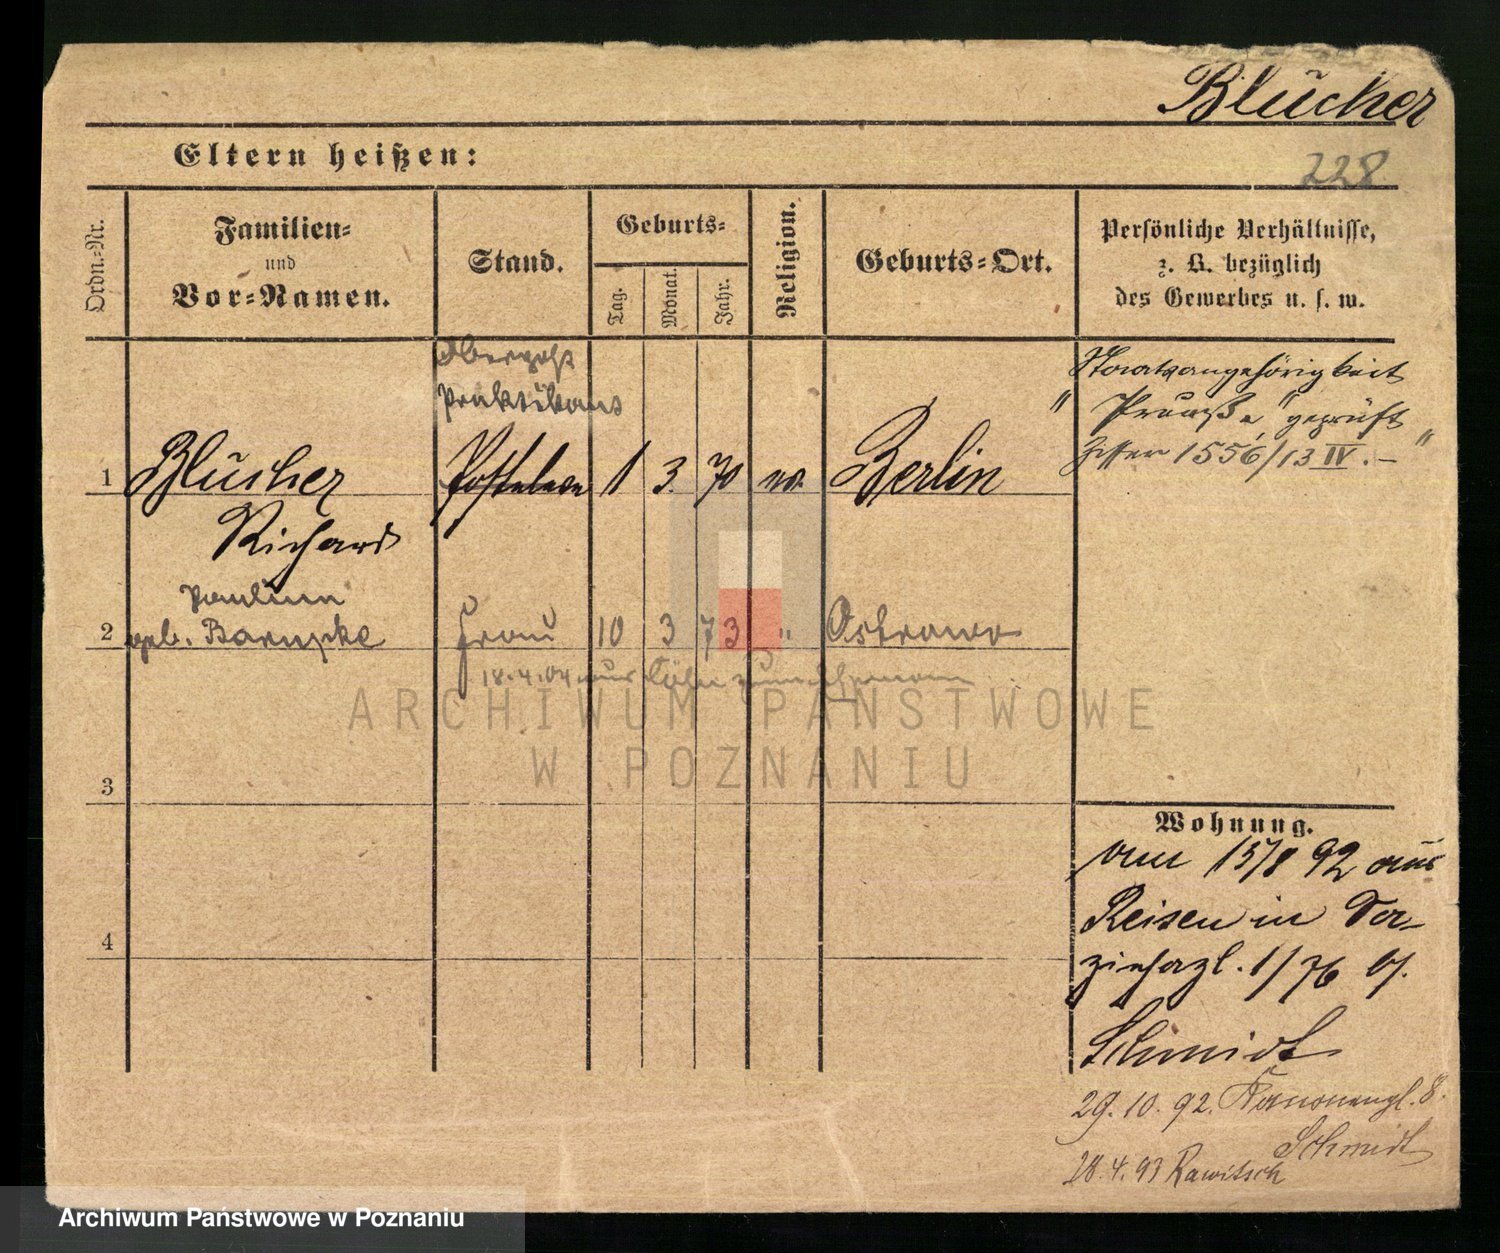 Blücher
Eltern heißen:
228
Ordn.-Nr.
Familien-
und
Vor-Namen.
Stand.
Geburts-
Tag.
Monat.
Jahr.
Religion.
Geburts-Ort.
Persönliche Verhältnisse,
z. B. bezüglich
des Gewerbes u. s. w.
Oberpost
Praktikant
Staatsangehörigkeit
"Preuße" geprüft
1556/13 IV. —
1 Blücher 1 3. 70 Berlin
Richard
2 geb. Frau 10 3 73 " Ostrowo
18.4.04 aus zum Ehemann
ARCHIWUM PAŃSTWOWE
W POZNANIU
3
Wohnung.
15/8 92 aus
Reisen in
4
1/76 b/.
Schmidt
29.10.92. Kanonenpl. 8.
Schmidt
28.4.93 Rawitsch
Archiwum Państwowe w Poznaniu